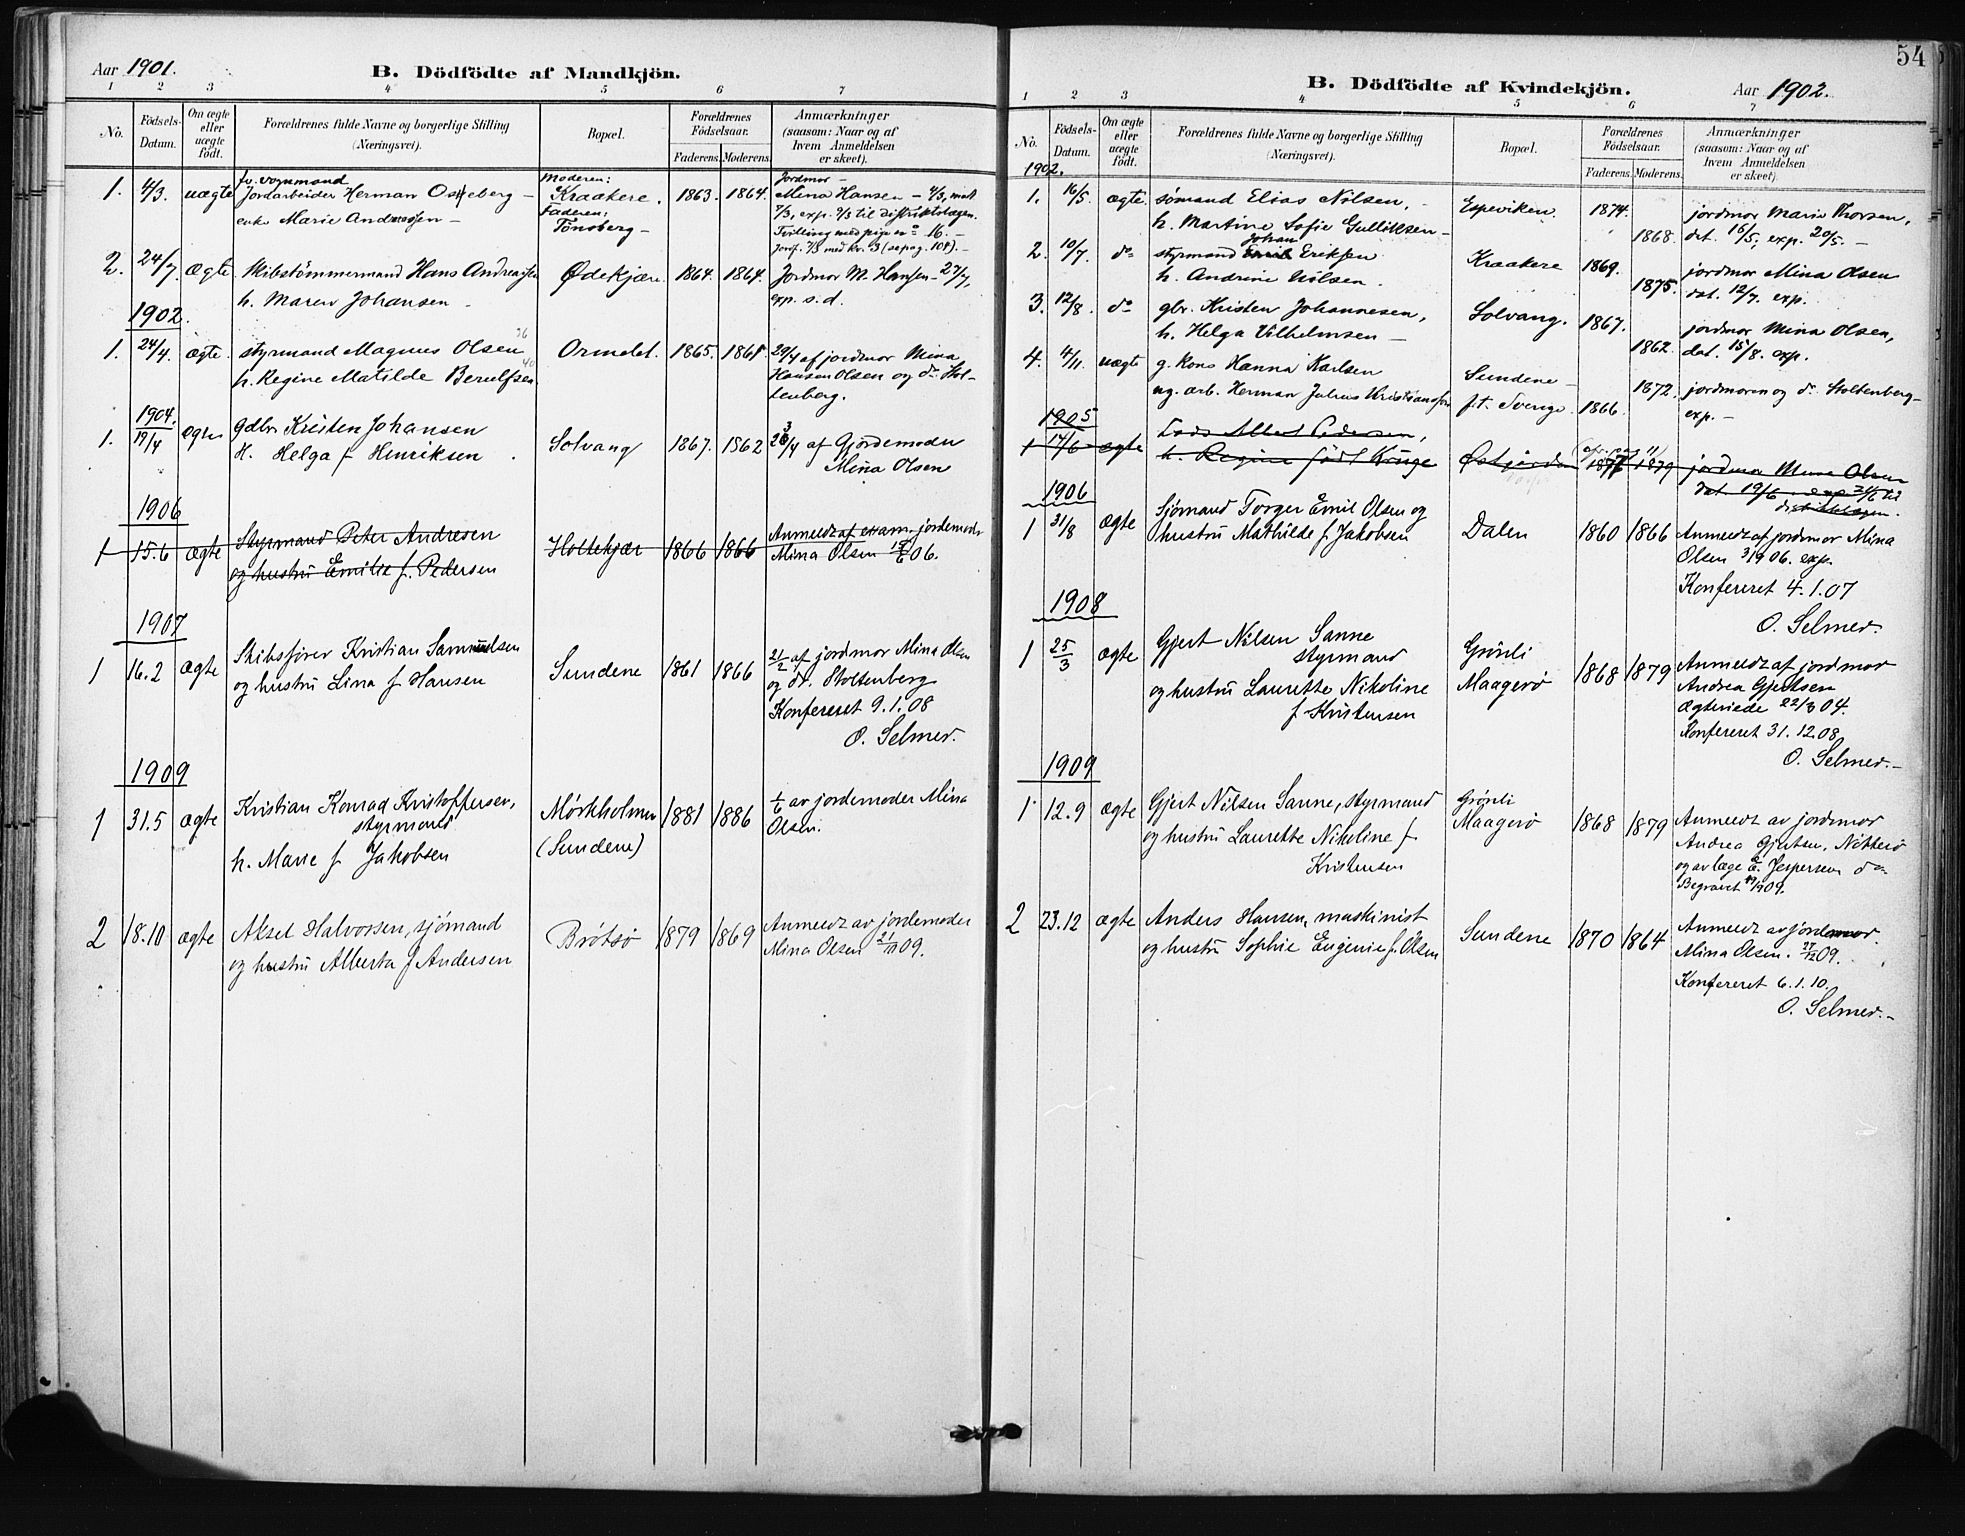 Aar 1901.
B. Dödfödte af Mandkjön.
1 2 3 4 5 6 7
No. Födsels-Datum. Om ægte eller uægte födt. Forældrenes fulde Navne og borgerlige Stilling (Næringsvei). Bopæl. Forældrenes Födselsaar. Faderens. Moderens. Anmærkninger (saasom: Naar og af hvem Anmeldelsen er skeet).
1. 4/3. uægte
fv. vognmand
Jordarbeider Herman Oskeberg –
enke Marie Andreassen –
Moderen:
Kraakere.
Faderen:
Tönsberg –
1863. 1864.
Jordmor –
Mina Hansen – 4/3, mdt
7/3, exp. 7/3 til distriktslægen.
Tvilling med pige nº 16. –
Jevnf. 7/3 med kv. 3 (se pag. 104). –
2. 24/7. ægte
Skibstømmermand Hans Andreassen
h. Maren Johansen –
Ødekjær. 1864. 1864.
Jordmor M. Hansen – 27/7,
exp. s. d.
1902.
1. 24/4. ægte.
styrmand Magnus Olsen 36
h. Regine Matilde Berulfsen 40
Ormelet. 1865. 1861.
29/4 af jordmor Mina
Hansen Olsen og dr. Stol-
tenberg.
1904.
1. 17/4 ægte
gdbr. Kristen Johansen
H. Helga f. Henriksen.
Solvang 1867. 1862
23/4 af Gjordemoder
Mina Olsen
1906
1 15.6 ægte
Styrmand Peter Andresen
og hustru Emilie f. Pedersen
Holtekjær 1866 1866
Anmeldt af exam. jordemoder
Mina Olsen 19/6 06.
1907
1 16.2 ægte
Skibsfører Kristian Samuelsen
og hustru Lina f. Hansen
Sundene 1861 1866
21/2 af jordmor Mina Olsen
og dr. Stoltenberg
Konfereret 9.1.08
O. Selmer.
1909
1 31.5 ægte
Kristian Konrad Kristoffersen,
styrmand
h. Marie f. Jakobsen
Mørkholmen
(Sundene)
1881 1886
1/6 av jordemoder Mina
Olsen.
2 18.10 ægte
Aksel Halvorsen, sjømand
og hustru Alberta f. Andersen
Brøtsø 1879 1869
Anmeldt av jordemoder
Mina Olsen 21/10 09.
54
B. Dödfödte af Kvindekjön.
Aar 1902.
1 2 3 4 5 6 7
No. Födsels-Datum. Om ægte eller uægte födt. Forældrenes fulde Navne og borgerlige Stilling (Næringsvei). Bopæl. Forældrenes Födselsaar. Faderens. Moderens. Anmærkninger (saasom: Naar og af hvem Anmeldelsen er skeet).
1902.
1. 16/5. ægte.
sømand Elias Nilsen,
h. Martine Sofie Gulliksen –
Espeviken. 1874. 1868.
jordmor Marie Thorsen,
dat. 16/5, exp. 20/5. –
2. 10/7. do
styrmand Johan Eriksen
h. Andrine Nilsen.
Kraakere 1869. 1875.
jordmor Mina Olsen
dat. 12/7. exp.
3. 12/8. do
gbr. Kristen Johannesen,
h. Helga Vilhelmsen –
Solvang. 1867. 1862.
jordmor Mina Olsen,
dat. 15/8. exp.
4. 4/11. uægte
g. kone Hanna Karlsen
ug. arb. Herman Julius Kristiansen
Sundene –
f.t. Sverige. 1866. 1872.
jordmoren og dr. Stoltenberg –
exp. –
1905
1 17/6 ægte
Lods Albert Pedersen,
h. Regine født Kruge
1877 1879
jordmor Mina Olsen
dat. 19/6 exp 24/6 til
distriktslægen.
1906
1 31/8 ægte
Sjømand Torger Emil Olsen og
hustru Mathilde f. Jakobsen
Dalen 1860 1866
Anmeldt af jordmor Mina
Olsen 3/9 06. exp.
Konfereret 4.1.07
O. Selmer.
1908
1 25/3 ægte
Gjert Nilsen Sanne
styrmand
og hustru Laurette Nikoline
f. Kristensen
Grönli
Maagerö
1868 1879
Anmeldt af jordmor
Andrea Gjertsen
Ægteviede 22/3 04.
Konfereret 31.12.08
O. Selmer. –
1909
1 12.9 ægte
Gjert Nilsen Sanne, styrmand
og hustru Laurette Nikoline f.
Kristensen
Grönli
Maagerö
1868 1879
Anmeldt av jordmor
Andrea Gjertsen, Nötterö
og av læge E. Jespersen do
Begravet 19/9 09.
2 23.12 ægte
Anders Hansen, maskinist
og hustru Sophie Eugenie f. Olsen
Sundene 1870 1864
Anmeldt av jordemor
Mina Olsen. 27/12 09.
Konfereret 6.1.10.
O. Selmer. –